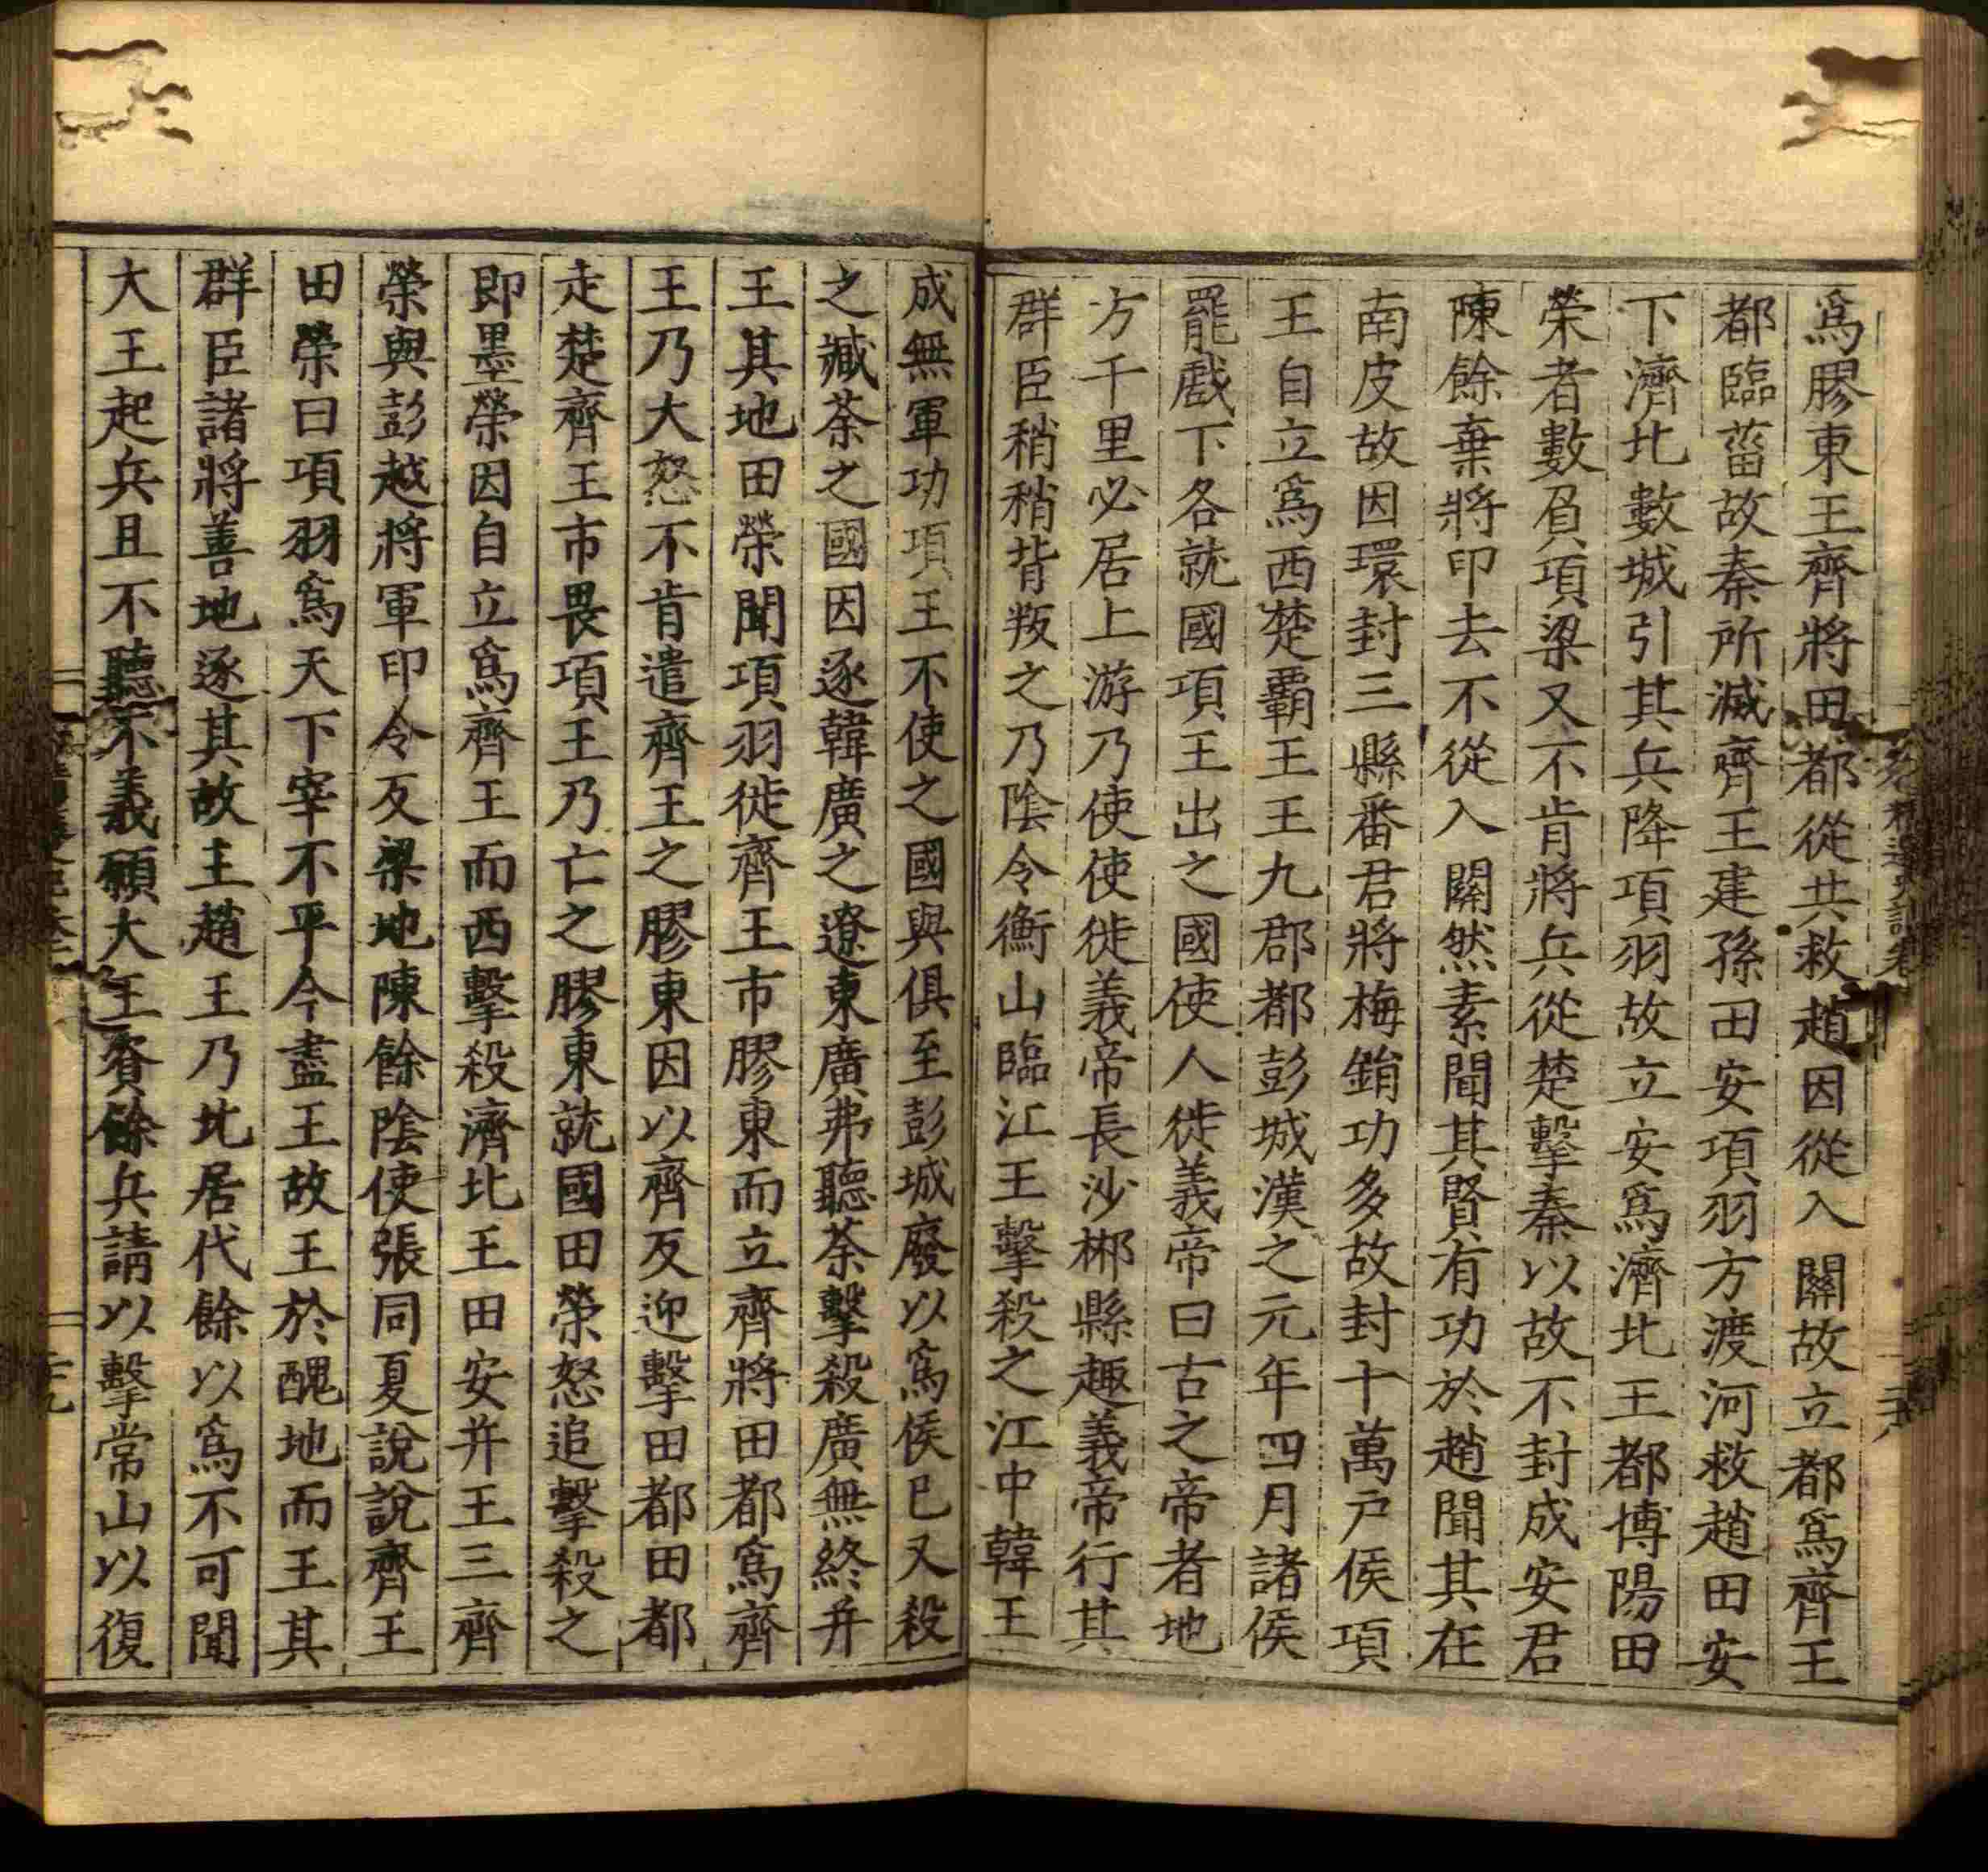 爲膠東王齊將田都從共救趙因從入關故立都爲齊王
都臨菑故秦所滅齊王建孫田安項羽方渡河救趙田安
下濟北數城引其兵降項羽故立安爲濟北王都博陽田
榮者數負項梁又不肯將兵從楚擊秦以故不封成安君
陳餘棄將印去不從入關然素聞其賢有功於趙聞其在
南皮故因環封三縣番君將梅鋗功多故封十萬户侯項
王自立爲西楚霸王王九郡都彭城漢之元年四月諸侯
罷戲下各就國項王出之國使人徙義帝曰古之帝者地
方千里必居上游乃使使徙義帝長沙郴縣趣義帝行其
群臣稍稍背叛之乃陰令衡山臨江王擊殺之江中韓王
成無軍功項王不使之國與俱至彭城廢以爲侯已又殺
之臧荼之國因逐韓廣之遼東廣弗聽荼擊殺廣無終并
王其地田榮聞項羽徙齊王市膠東而立齊將田都爲齊
王乃大怒不肯遣齊王之膠東因以齊反迎擊田都田都
走楚齊王市畏項王乃亡之膠東就國田榮怒追擊殺之
即墨榮因自立爲齊王而西擊殺濟北王田安并王三齊
榮與彭越將軍印令反梁地陳餘陰使張同夏說說齊王
田榮曰項羽爲天下宰不平今盡王故王於醜地而王其
群臣諸將善地逐其故王趙王乃北居代餘以爲不可聞
大王起兵且不聽不義願大王資餘兵請以擊常山以復